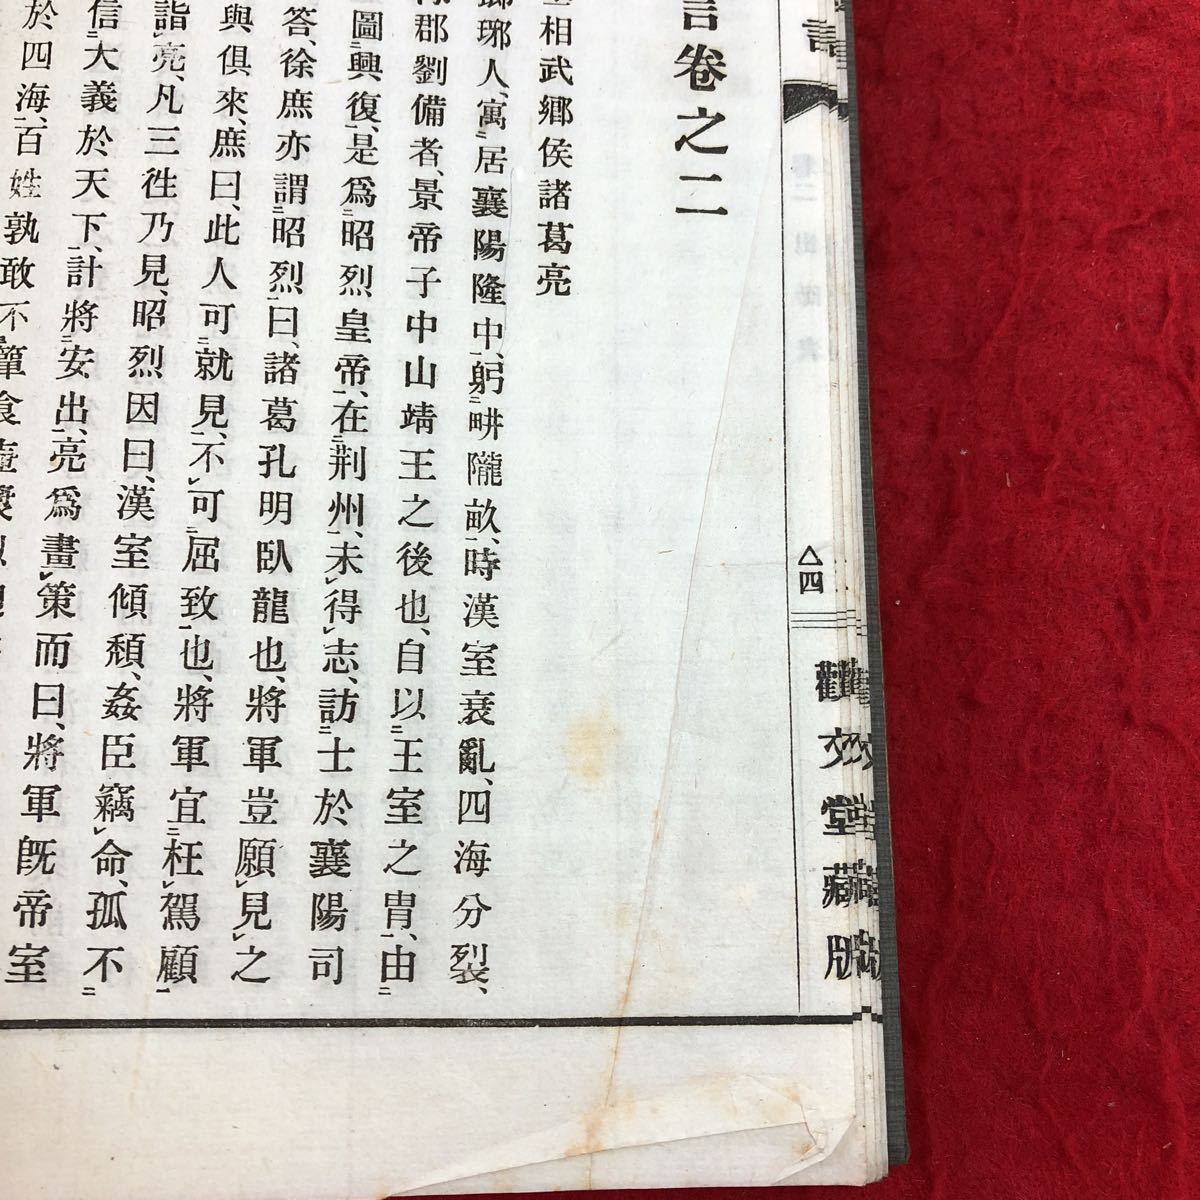 言卷之二
相武鄉侯諸葛亮
瑯琊人、寓居襄陽隆中、躬畊隴畝、時漢室衰亂、四海分裂、
郡劉備者、景帝子中山靖王之後也、自以王室之冑、由
圖興復、是爲昭烈皇帝、在荆州、未得志、訪士於襄陽司
答、徐庶亦謂昭烈曰、諸葛孔明臥龍也、將軍豈願見之
與俱來、庶曰、此人可就見、不可屈致也、將軍宜枉駕顧
詣亮、凡三徃乃見、昭烈因曰、漢室傾頹、姦臣竊命、孤不
信大義於天下、計將安出、亮爲畫策而曰、將軍既帝室
於四海、百姓孰敢不簞食壺漿
△四
觀文堂藏版